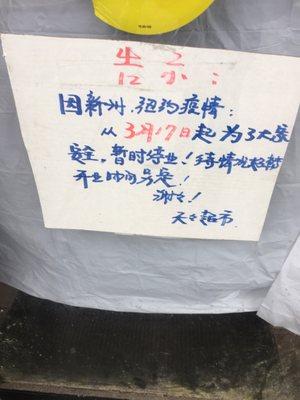 告示：
因新州、纽约疫情：
从3月17日起为了大家
安全，暂时停业！待情况好转
开业时间另定！
谢谢！
天天超市